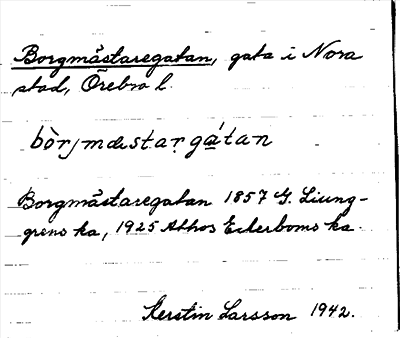 Borgmästaregatan, gata i Nora
stad, Örebro l.
bòrjmæstarga̱´tan
Borgmästaregatan 1857 G. Ljung-
grens ka, 1925 Athos Ecklerboms ka.
Kerstin Larsson 1942.